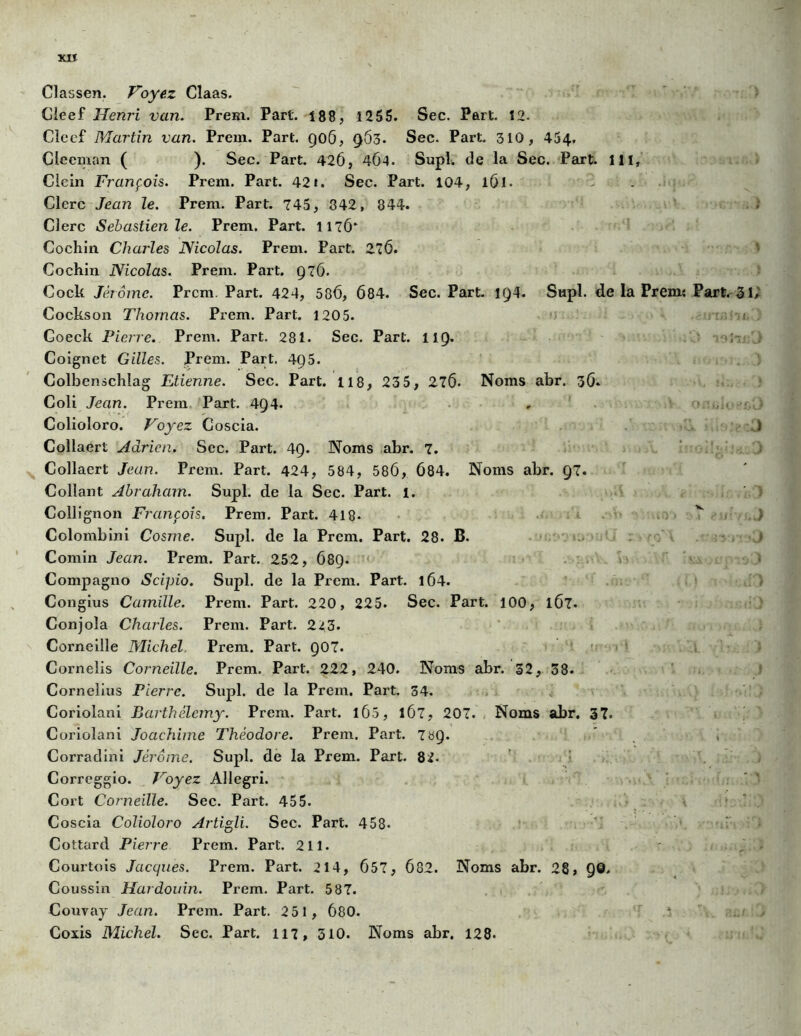 XII
Classen. Voyez Claas.
Cleef Henri van. Prem. Part. 188, 1255. Sec. Part. 12.
Cleef Martin van. Prem. Part. 906, 963. Sec. Part. 310, 454,
Cleeman ( ). Sec. Part. 426, 464. Supl. de la Sec. Part. 111,
Clein François. Prem. Part. 421. Sec. Part. 104, 161.
Clerc Jean le. Prem. Part. 745, 342, 844.
Clerc Sebastien le. Prem. Part. 1176.
Cochin Charles Nicolas. Prem. Part. 276.
Cochin Nicolas. Prem. Part. 976.
Cock Jérôme. Prem. Part. 424, 586, 684. Sec. Part. 194. Supl. de la Prem. Part. 31,
Cockson Thomas. Prem. Part. 1205.
Coeck Pierre. Prem. Part. 281. Sec. Part. 119.
Coignet Gilles. Prem. Part. 495.
Colbenschlag Etienne. Sec. Part. 118, 235, 276. Noms abr. 36.
Coli Jean. Prem. Part. 494.
Colioloro. Voyez Coscia.
Collaert Adrien. Sec. Part. 49. Noms abr. 7.
Collaert Jean. Prem. Part. 424, 584, 586, 684. Noms abr. 97.
Collant Abraham. Supl. de la Sec. Part. 1.
Collignon François. Prem. Part. 418.
Colombini Cosme. Supl. de la Prem. Part. 28. B.
Comin Jean. Prem. Part. 252, 689.
Compagno Scipio. Supl. de la Prem. Part. 164.
Congius Camille. Prem. Part. 220, 225. Sec. Part. 100, 167.
Conjola Charles. Prem. Part. 223.
Corneille Michel. Prem. Part. 907.
Cornelis Corneille. Prem. Part. 222, 240. Noms abr. 32, 38.
Cornelius Pierre. Supl. de la Prem. Part. 34.
Coriolani Barthélemy. Prem. Part. 165, 167, 207. Noms abr. 37.
Coriolani Joachime Théodore. Prem. Part. 789.
Corradini Jérôme. Supl. de la Prem. Part. 82.
Correggio. Voyez Allegri.
Cort Corneille. Sec. Part. 455.
Coscia Colioloro Artigli. Sec. Part. 458.
Cottard Pierre Prem. Part. 211.
Courtois Jacques. Prem. Part. 214, 657, 682. Noms abr. 28, 90.
Coussin Hardouin. Prem. Part. 587.
Couvay Jean. Prem. Part. 251, 680.
Coxis Michel. Sec. Part. 117, 310. Noms abr. 128.